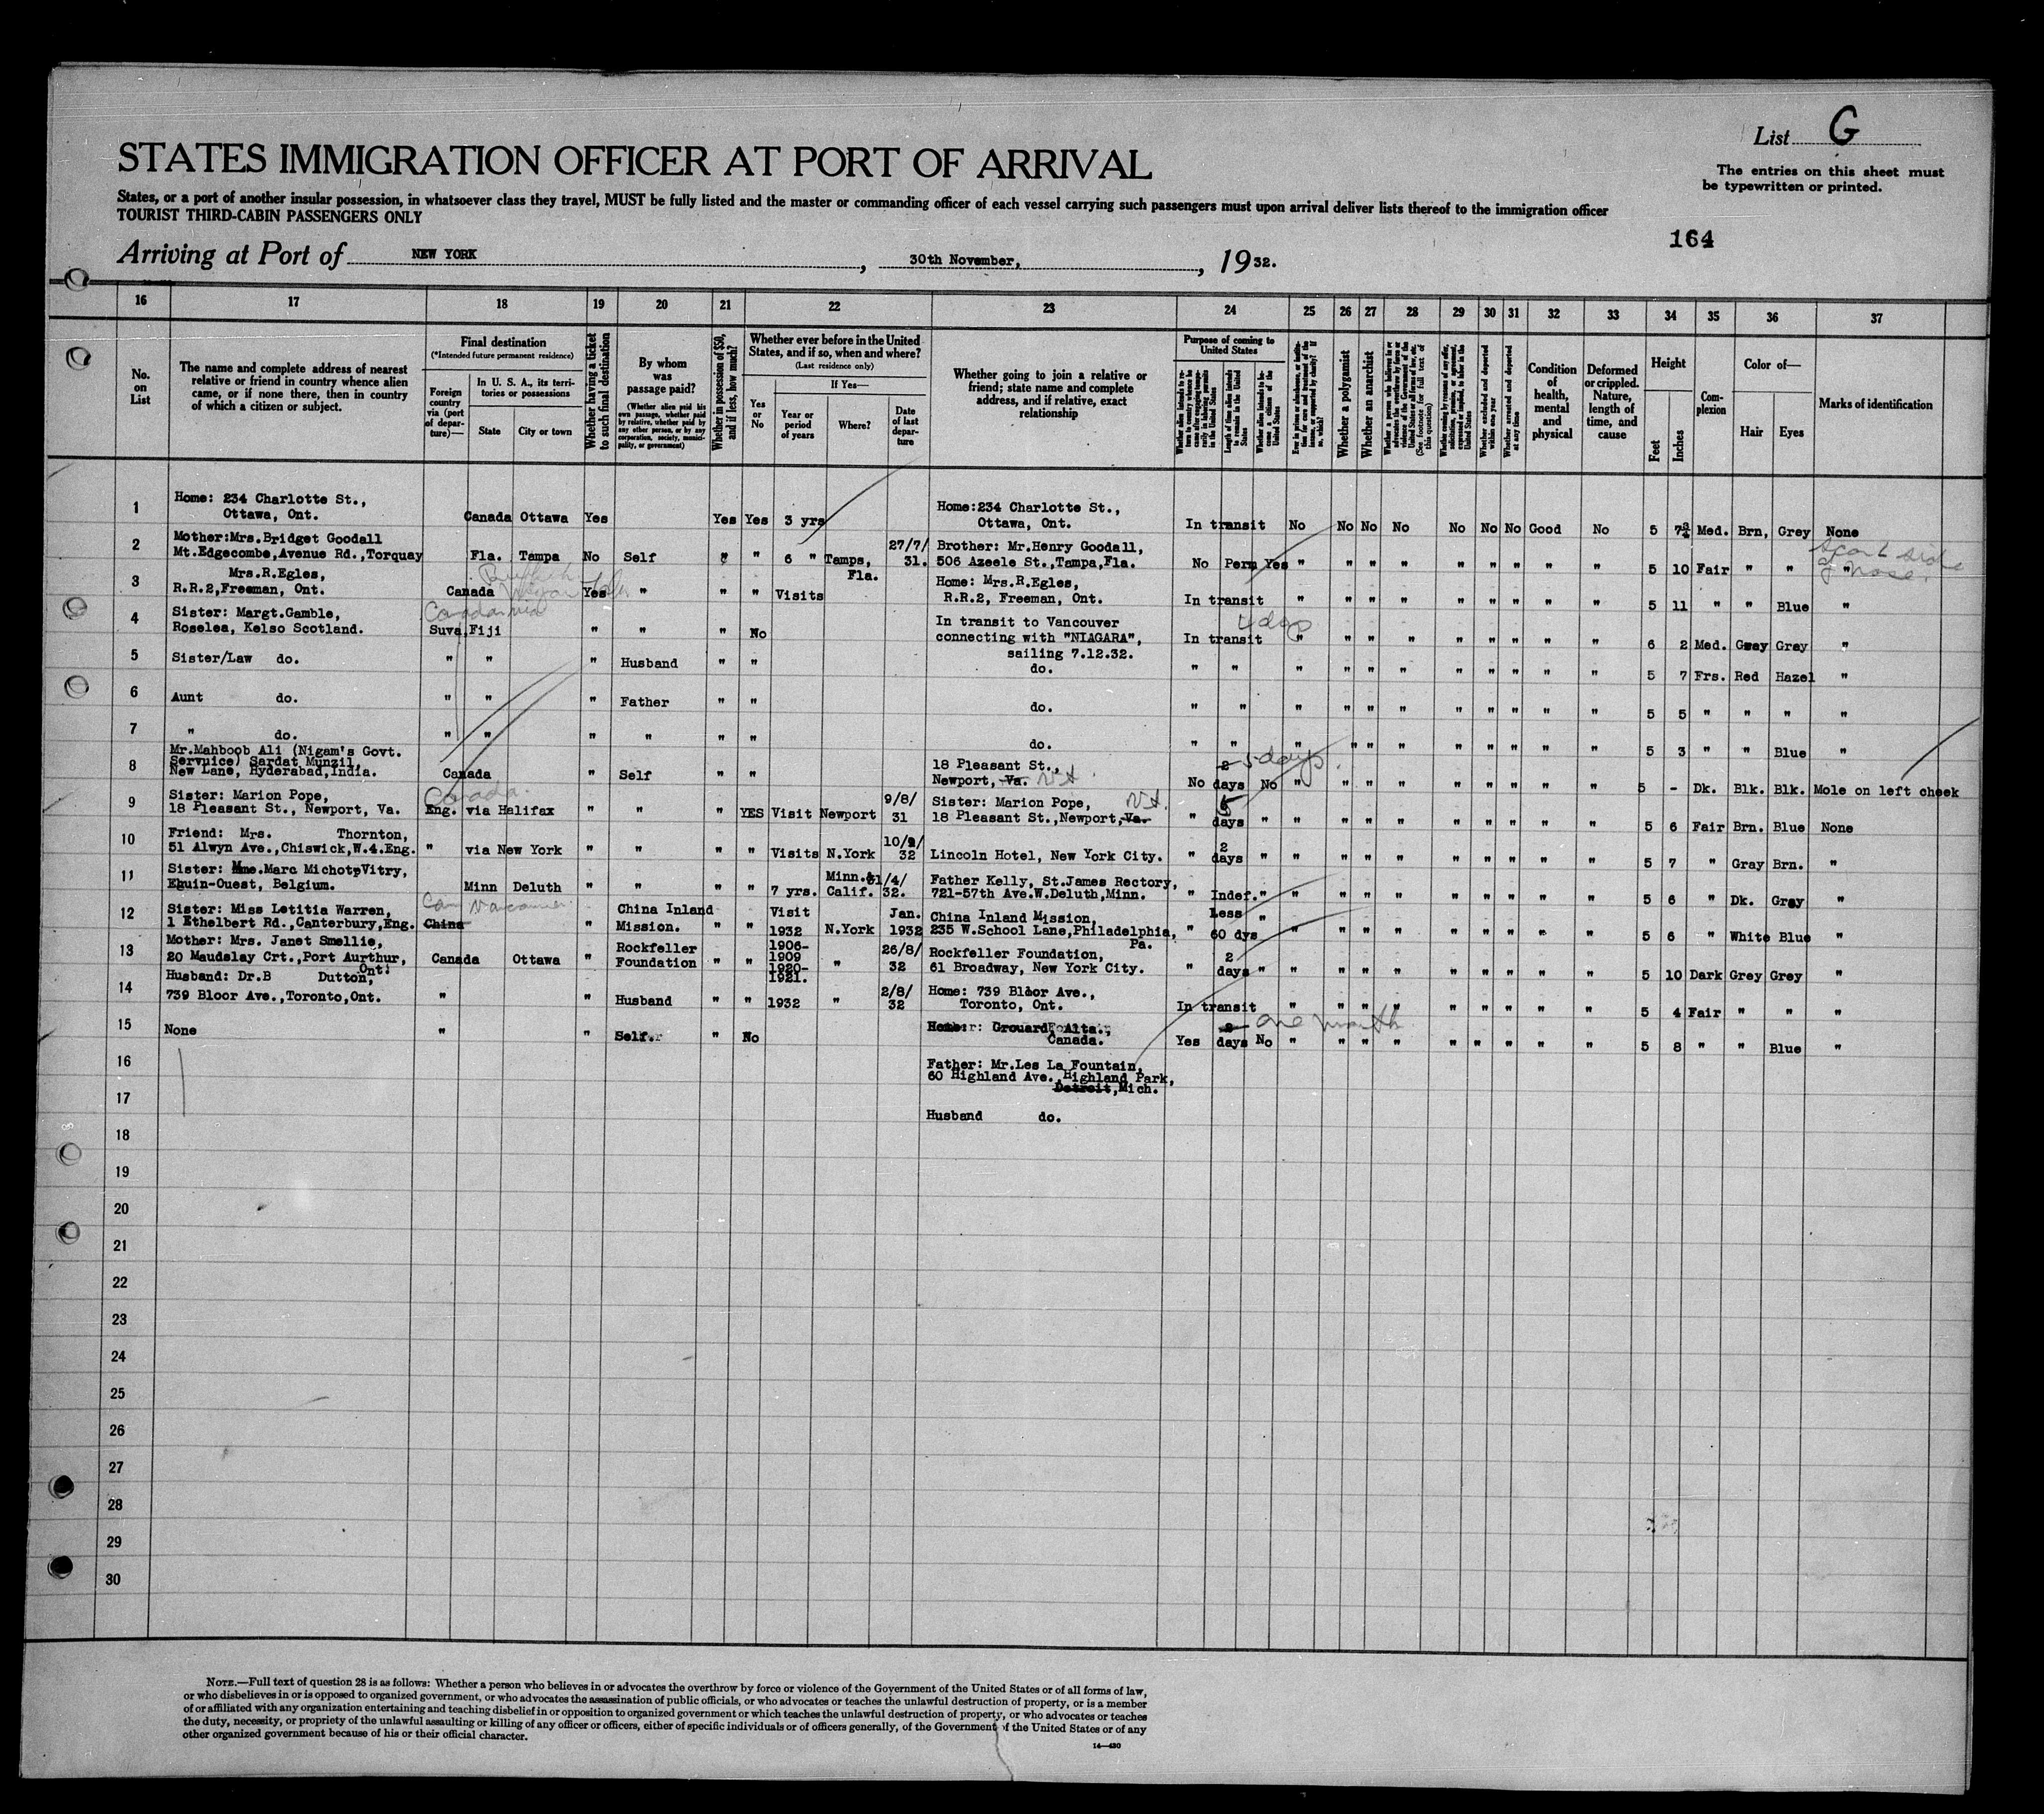 List G
STATES IMMIGRATION OFFICER AT PORT OF ARRIVAL
The entries on this sheet must
be typewritten or printed.
States, or a port of another insular possession, in whatsoever class they travel, MUST be fully listed and the master or commanding officer of each vessel carrying such passengers must upon arrival deliver lists thereof to the immigration officer
TOURIST THIRD-CABIN PASSENGERS ONLY
164
Arriving at Port of NEW YORK, 30th November, 1932.
16 17 18 19 20 21 22 23 24 25 26 27 28 29 30 31 32 33 34 35 36 37
No. on List
The name and complete address of nearest relative or friend in country whence alien came, or if none there, then in country of which a citizen or subject.
Final destination
(*Intended future permanent residence)
Foreign country via (port of departure)—
In U. S. A., its territories or possessions
State City or town
Whether having a ticket to such final destination
By whom was passage paid?
(Whether alien paid his own passage, whether paid by relative, whether paid by any other person, or by any corporation, society, municipality, or government)
Whether in possession of $50, and if less, how much?
Whether ever before in the United States, and if so, when and where?
(Last residence only)
Yes or No
If Yes—
Year or period of years
Where?
Date of last departure
Whether going to join a relative or friend; state name and complete address, and if relative, exact relationship
Purpose of coming to United States
Length of time alien intends to remain in the United States
Whether alien intends to become a citizen of the United States
Whether a polygamist
Whether an anarchist
Whether excluded and deported within one year
Whether arrested and deported at any time
Condition of health, mental and physical
Deformed or crippled. Nature, length of time, and cause
Height
Feet Inches
Complexion
Color of—
Hair Eyes
Marks of identification
1 Home: 234 Charlotte St., Ottawa, Ont. Canada Ottawa Yes Yes Yes 3 yrs Home:234 Charlotte St., Ottawa, Ont. In transit No No No No No No No Good No 5 7¾ Med. Brn, Grey None
2 Mother:Mrs.Bridget Goodall Mt.Edgecombe,Avenue Rd.,Torquay Fla. Tampa No Self " " 6 " Tampa, Fla. 27/7/31. Brother: Mr.Henry Goodall, 506 Azeele St.,Tampa,Fla. No Perm Yes " " " " " " " " " 5 10 Fair " " "
3 Mrs.R.Egles, R.R.2,Freeman, Ont. Canada Yes " " " Visits Home: Mrs.R.Egles, R.R.2, Freeman, Ont. In transit " " " " " " " " " 5 11 " " Blue "
4 Sister: Margt.Gamble, Roselea, Kelso Scotland. Suva,Fiji " " " No In transit to Vancouver connecting with "NIAGARA", sailing 7.12.32. In transit " " " " " " " " " 6 2 Med. Gray Gray "
5 Sister/Law do. " " " Husband " " do. " " " " " " " " " " " 5 7 Frs. Red Hazel "
6 Aunt do. " " " Father " " do. " " " " " " " " " " " 5 5 " " " "
7 " do. " " " " " " do. " " " " " " " " " " " 5 3 " " Blue "
8 Mr.Mahboob Ali (Nigam's Govt. Servuice) Sardat Munzil, New Lane, Hyderabad,India. Canada " Self " " 18 Pleasant St., Newport, Va. Vt. No 2 days 5 days No " " " " " " " " " 5 - Dk. Blk. Blk. Mole on left cheek
9 Sister: Marion Pope, 18 Pleasant St., Newport, Va. Canada Eng. via Halifax " " " YES Visit Newport 9/8/31 Sister: Marion Pope, 18 Pleasant St.,Newport,Va. Vt. " days " " " " " " " " " " 5 6 Fair Brn. Blue None
10 Friend: Mrs. Thornton, 51 Alwyn Ave.,Chiswick,W.4.Eng. " via New York " " " " Visits N.York 32 Lincoln Hotel, New York City. " 2 days " " " " " " " " " " 5 7 " Gray Brn. "
11 Sister: Mme.Marc Michotte Vitry, Eguin-Ouest, Belgium. Minn Deluth " " " " 7 yrs. Minn.& Calif. 31/4/32. Father Kelly, St.James Rectory, 721-57th Ave.W.Deluth,Minn. " Indef." " " " " " " " " " 5 6 " Dk. Gray "
12 Sister: Miss Letitia Warren, 1 Ethelbert Rd.,Canterbury,Eng. China Can Vancouver " China Inland Mission. " " Visit 1932 N.York Jan. 1932 China Inland Mission, 235 W.School Lane,Philadelphia, Pa. " Less 60 dys " " " " " " " " " " 5 6 " White Blue "
13 Mother: Mrs. Janet Smellie, 20 Maudslay Crt.,Port Aurthur, Ont. Canada Ottawa " Rockfeller Foundation " " 1906-1909 1920-1921. " 26/8/32 Rockfeller Foundation, 61 Broadway, New York City. " 2 days " " " " " " " " " " 5 10 Dark Grey Grey "
14 Husband: Dr.B Dutton, 739 Bloor Ave.,Toronto,Ont. " " Husband " " 1932 " 2/8/32 Home: 739 Bloor Ave., Toronto, Ont. In transit " " " " " " " " " 5 4 Fair " " "
15 None " " Self. " No Grouard, Alta., Canada. Yes days one month No " " " " " " " " " 5 8 " " Blue "
16 Father: Mr.Les La Fountain, 60 Highland Ave.,Highland Park, Detroit,Mich.
17 Husband do.
18
19
20
21
22
23
24
25
26
27
28
29
30
NOTE.—Full text of question 28 is as follows: Whether a person who believes in or advocates the overthrow by force or violence of the Government of the United States or of all forms of law,
or who disbelieves in or is opposed to organized government, or who advocates the assassination of public officials, or who advocates or teaches the unlawful destruction of property, or is a member
of or affiliated with any organization entertaining and teaching disbelief in or opposition to organized government or which teaches the unlawful destruction of property, or who advocates or teaches
the duty, necessity, or propriety of the unlawful assaulting or killing of any officer or officers, either of specific individuals or of officers generally, of the Government of the United States or of any
other organized government because of his or their official character.
14—430